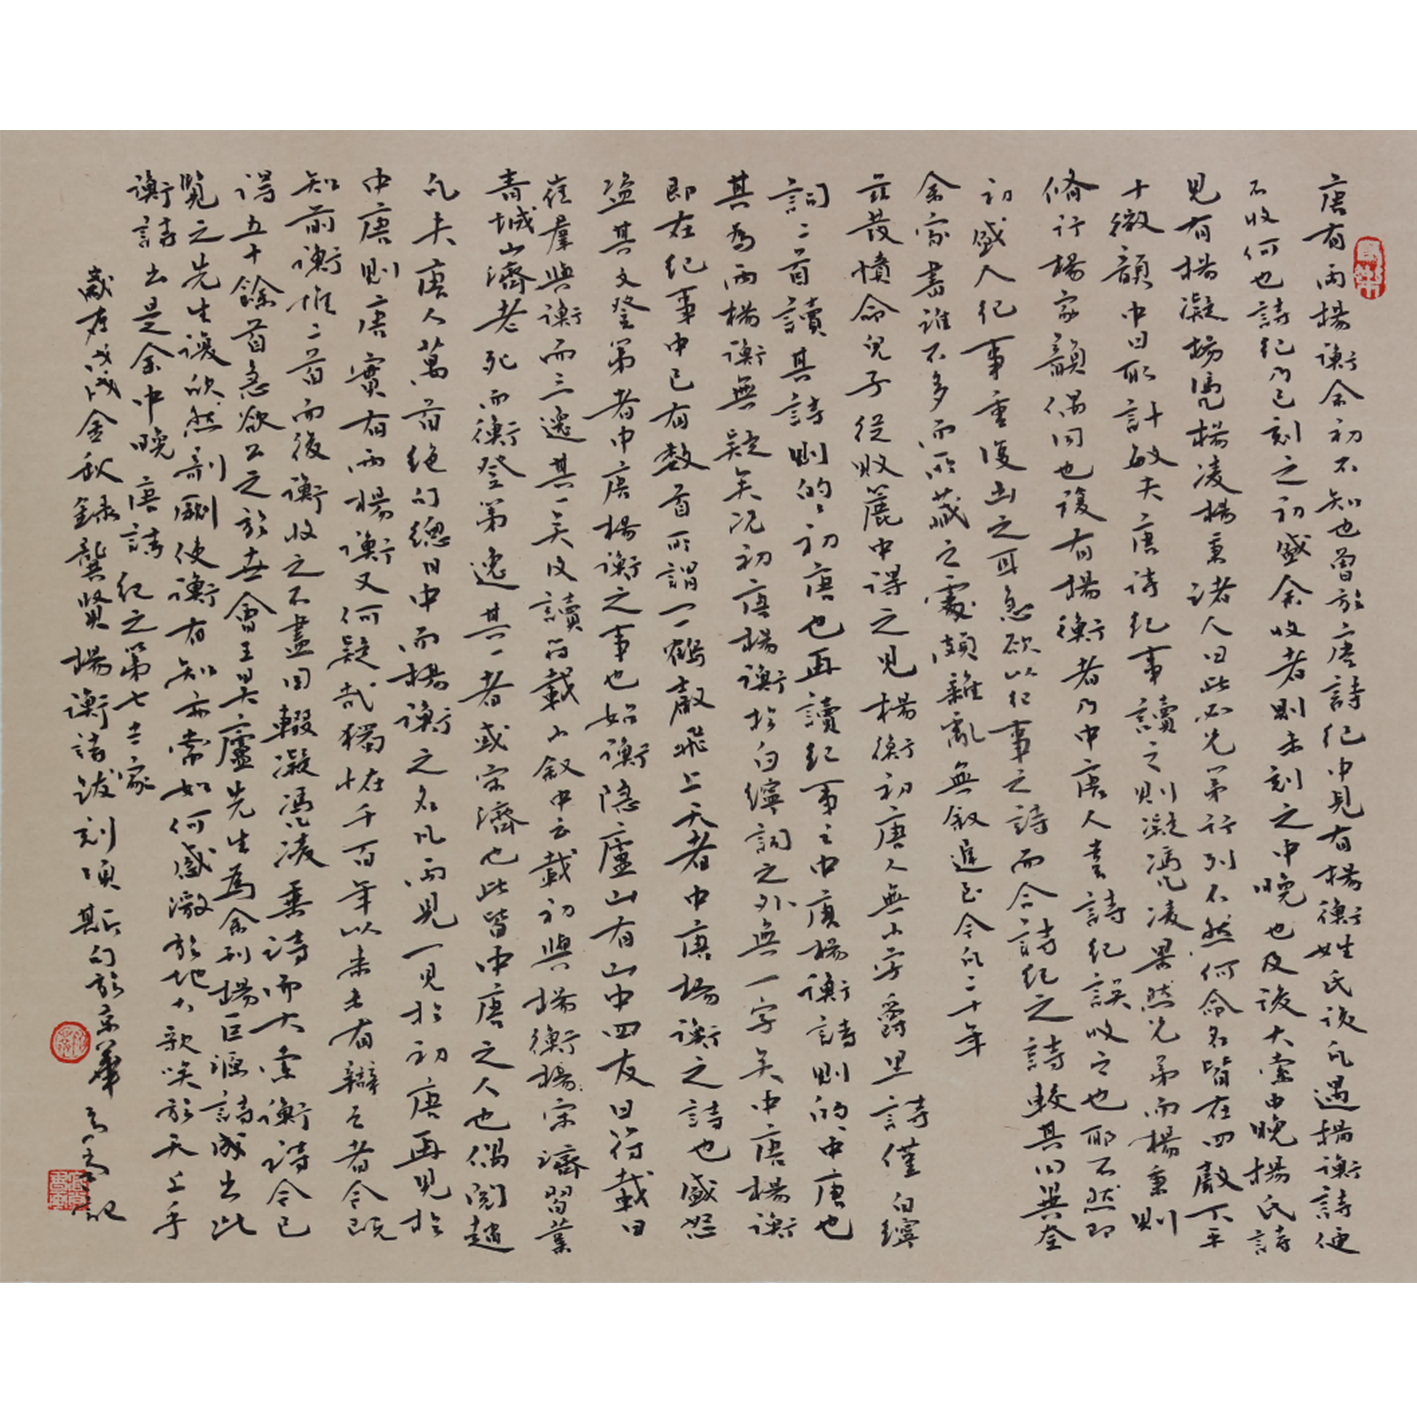 唐有兩楊衡余初不知也曾於唐詩紀中見有楊衡姓氏後凡遇楊衡詩便
不收何也詩紀乃已刻之初盛余收者則未刻之中晚也及後大索中晚楊氏詩
見有楊凝楊憑楊凌楊秉諸人曰此必兄弟行列不然何命名皆在四聲下平
十徵韻中曰取計敏夫唐詩紀事讀之則凝憑凌果然兄弟而楊秉則
脩行楊家韻偶同也後有楊衡者乃中唐人豈詩紀誤收之也耶不然即
初盛人紀事重復出之耳急欲以紀事之詩而合詩紀之詩較其同異奈
余家書雖不多而所藏之處頗雜亂無敘進至今凡二十年
茲發憤命兒子從敗簏中得之見楊衡初唐人無小字爵里詩僅白紵
詞二首讀其詩則的的初唐也再讀紀事之中唐楊衡詩則的中唐也
其為兩楊衡無疑矣况初唐楊衡於白紵詞之外無一字矣中唐楊衡
即在紀事中已有數首所謂一一鶴聲飛上天者中唐楊衡之詩也盛怒
盜其文登第者中唐楊衡之事也始衡隱廬山有山中四友曰符載曰
崔羣與衡而三逸其一矣及讀符載小敘中云載初與楊衡楊宋濟習業
青城山濟老死而衡登第逸其一者或宋濟也此皆中唐之人也偶閱趙
凡夫唐人萬首絶句總目中而楊衡之名凡兩見一見於初唐再見於
中唐則唐實有兩楊衡又何疑哉獨怪千百年以來未有辯之者今既
知前衡惟二首而後衡收之不盡因輟凝憑凌秉詩而大索衡詩今已
得五十餘首急欲公之於世會王昊廬先生為余刊楊巨源詩成出此
覽之先生讀欣然剞劂使衡有知亦當如何感激於地下歌哭於天上乎
衡詩出是余中晚唐詩紀之第七十家
歲在戊戌金秋錄龔賢楊衡詩跋刻項斯句於京華
記